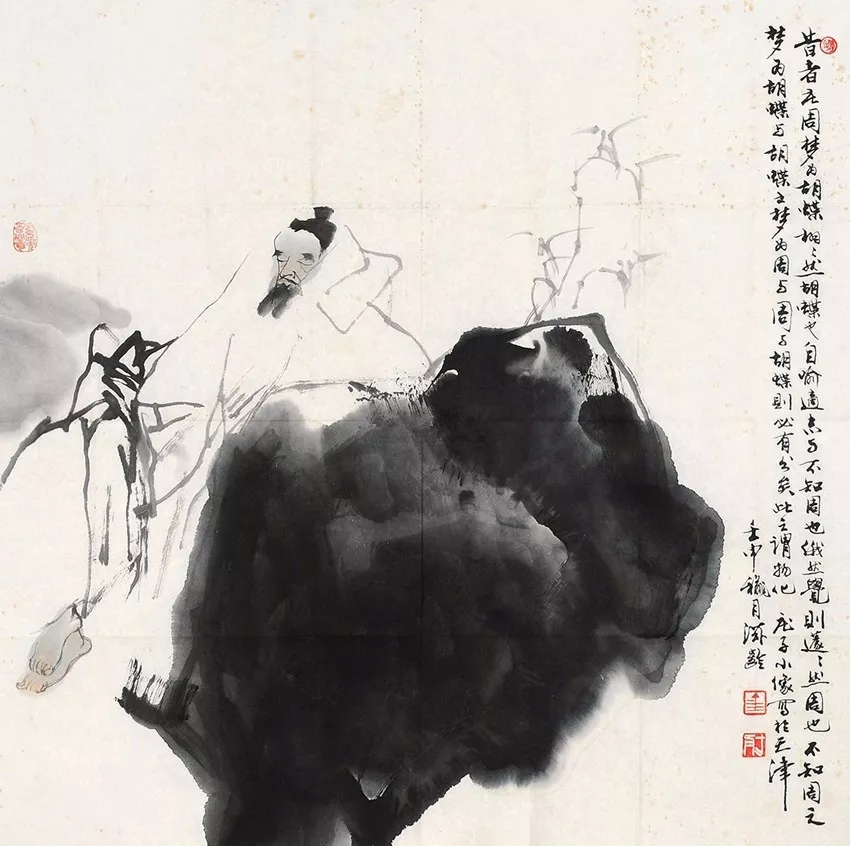 昔者庄周梦为胡蝶栩〻然胡蝶也自喻適志与不知周也俄然覺則蘧〻然周也不知周之
梦为胡蝶与胡蝶之梦为周与周与胡蝶則必有分矣此之谓物化 庄子小像写於天津
壬申穐月滋齡